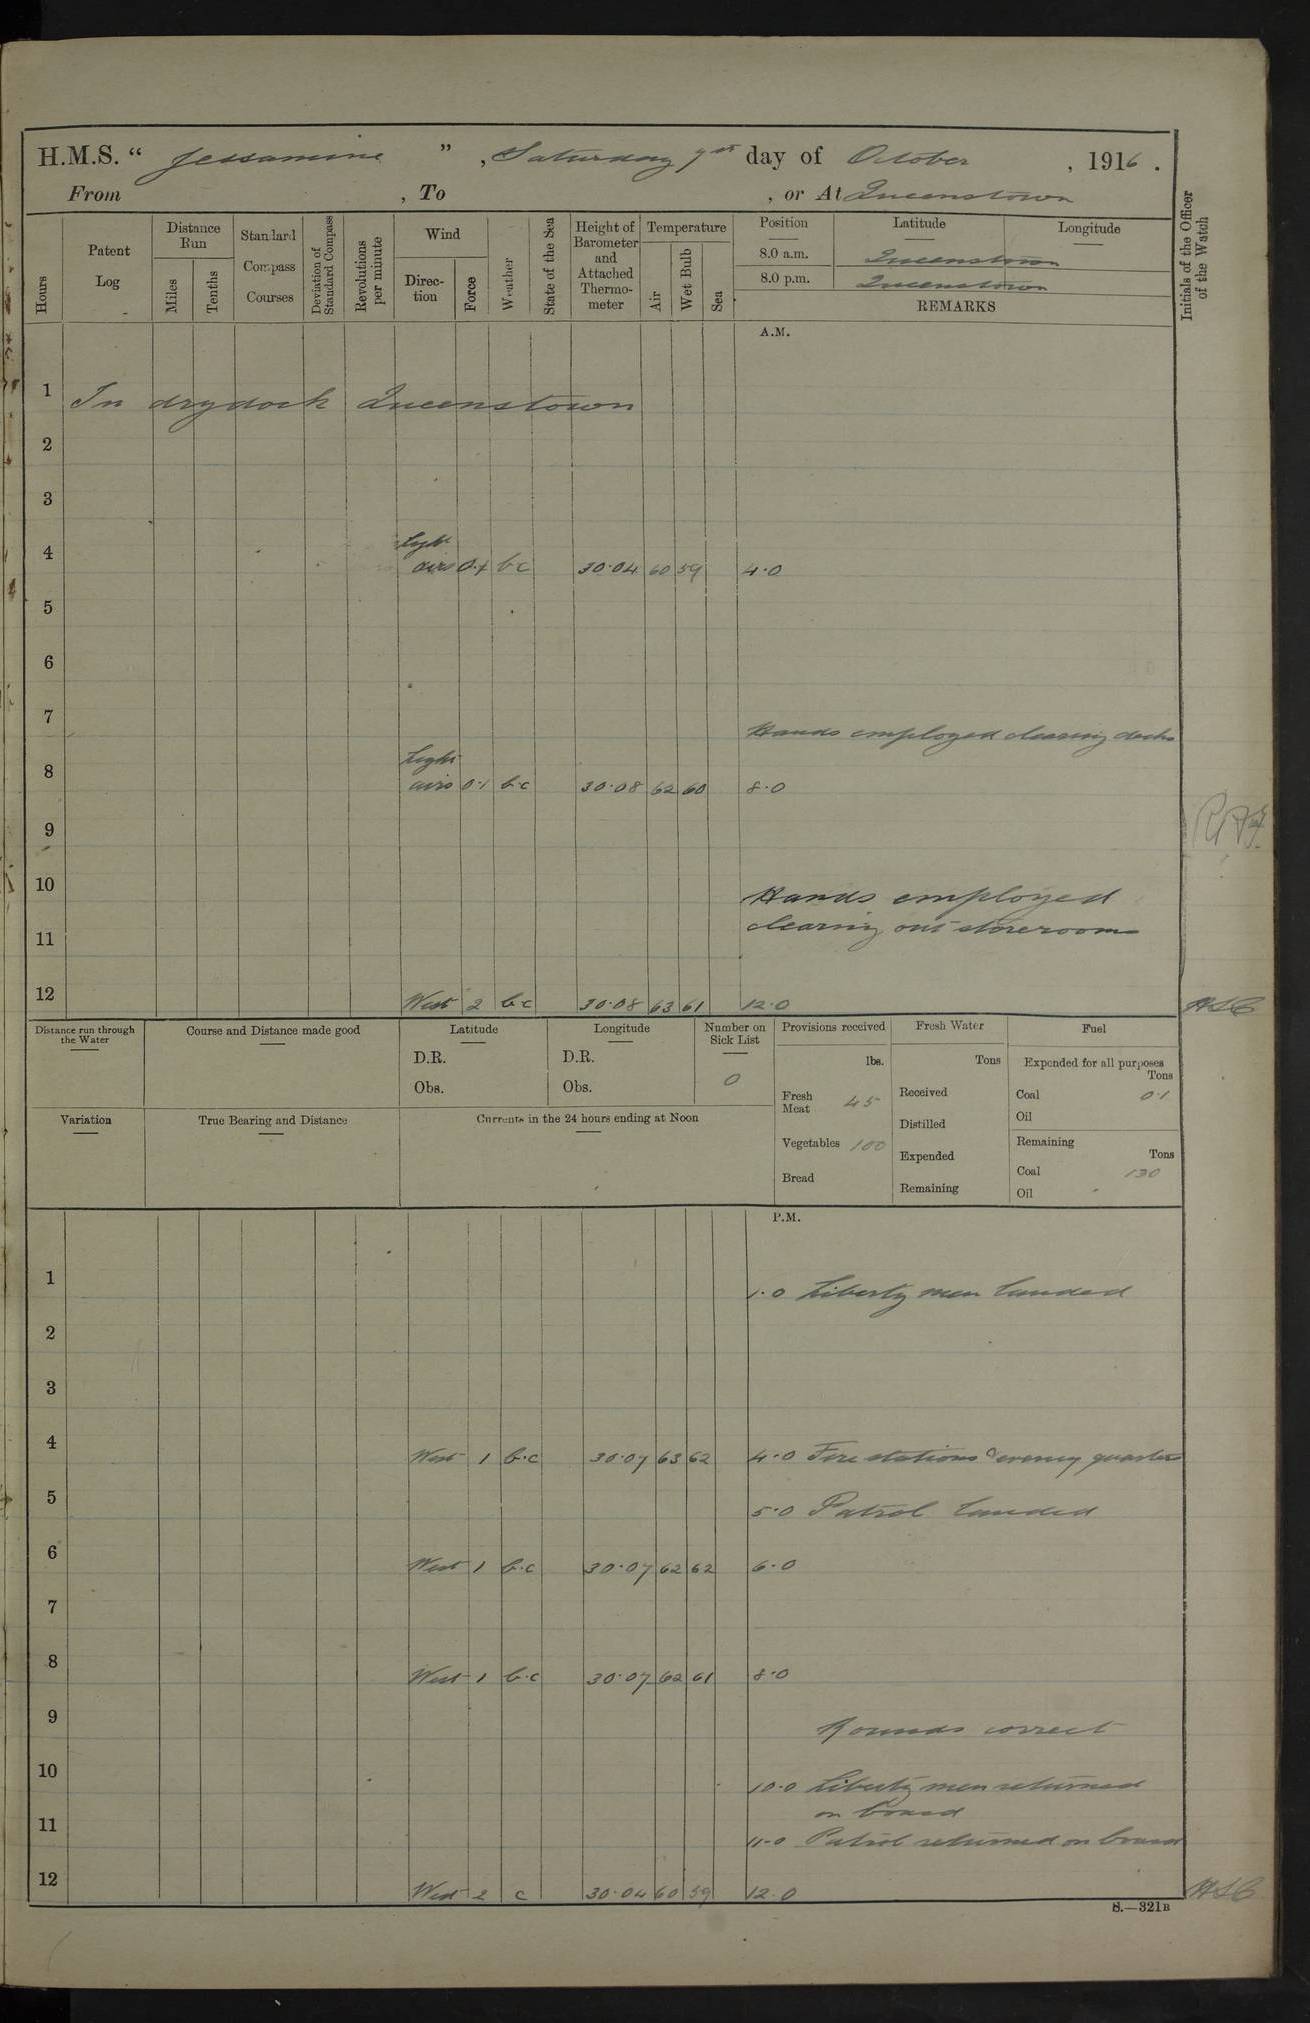 H.M.S. “ Jessamine ” , Saturday 7th day of October , 1916 .
From , To , or At Queenstown
Hours
Patent Log
Distance Run
Miles
Tenths
Standard Compass Courses
Deviation of Standard Compass
Revolutions per minute
Wind
Direction
Force
Weather
State of the Sea
Height of Barometer and Attached Thermometer
Temperature
Air
Wet Bulb
Sea
Position Latitude Longitude
8.0 a.m. Queenstown
8.0 p.m. Queenstown
REMARKS
Initials of the Officer of the Watch
A.M.
1 In drydock Queenstown
2
3
4 Light airs 0.1 b.c 30.04 60 59 4.0
5
6
7 Hands employed cleaning decks
8 Light airs 0.1 b.c 30.08 62 60 8.0
9
10 Hands employed
11 clearing out storerooms
12 West 2 b.c 30.08 63 61 12.0
Distance run through the Water
Course and Distance made good
Latitude
D.R.
Obs.
Longitude
D.R.
Obs.
Number on Sick List
0
Variation
True Bearing and Distance
Currents in the 24 hours ending at Noon
Provisions received
lbs.
Fresh Meat 45
Vegetables 100
Bread
Fresh Water
Tons
Received
Distilled
Expended
Remaining
Fuel
Expended for all purposes
Tons
Coal 0.1
Oil
Remaining
Tons
Coal 130
Oil
P.M.
1 1.0 Liberty men landed
2
3
4 West 1 b.c 30.07 63 62 4.0 Fire stations & evening quarters
5 5.0 Patrol landed
6 West 1 b.c 30.07 62 62 6.0
7
8 West 1 b.c 30.07 62 61 8.0
9 Rounds correct
10 10.0 Liberty men returned
on board
11 11.0 Patrol returned on board
12 West 2 c 30.04 60 59 12.0
S.—321B